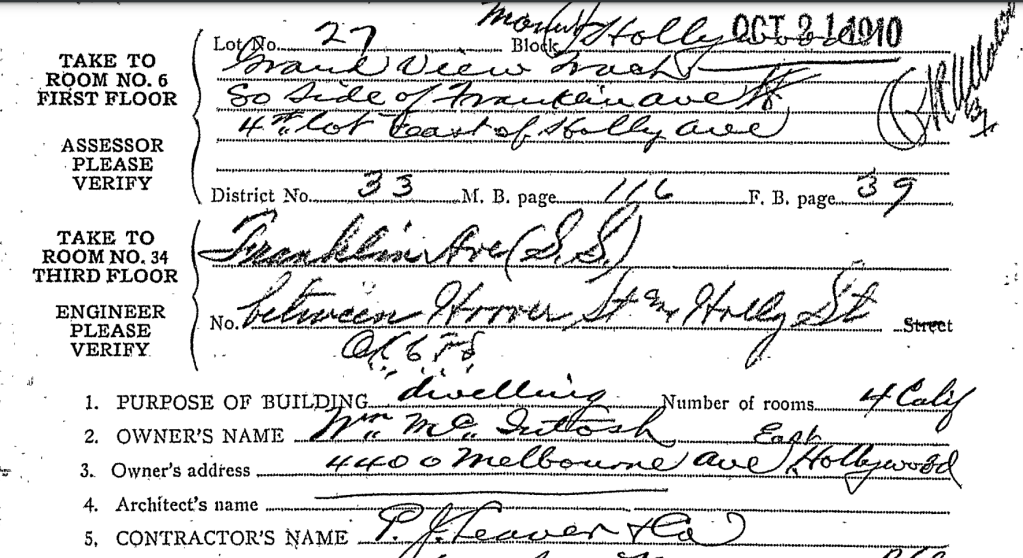 OCT 21 1910
Lot No. 27 Block Hollywood
TAKE TO
ROOM NO. 6
FIRST FLOOR
Grand View Tract
So Side of Franklin ave
4th lot East of Holly ave
ASSESSOR
PLEASE
VERIFY
District No. 33 M. B. page 116 F. B. page 39
TAKE TO
ROOM NO. 34
THIRD FLOOR
Franklin Ave (S.S.)
ENGINEER
PLEASE
VERIFY
No. between Hoover St & Holly St Street
OK
1. PURPOSE OF BUILDING dwelling Number of rooms 4 Calif
2. OWNER'S NAME Wm. Mc. Intosh
3. Owner's address 4400 Melbourne Ave East Hollywood
4. Architect's name
5. CONTRACTOR'S NAME P. J. & Co